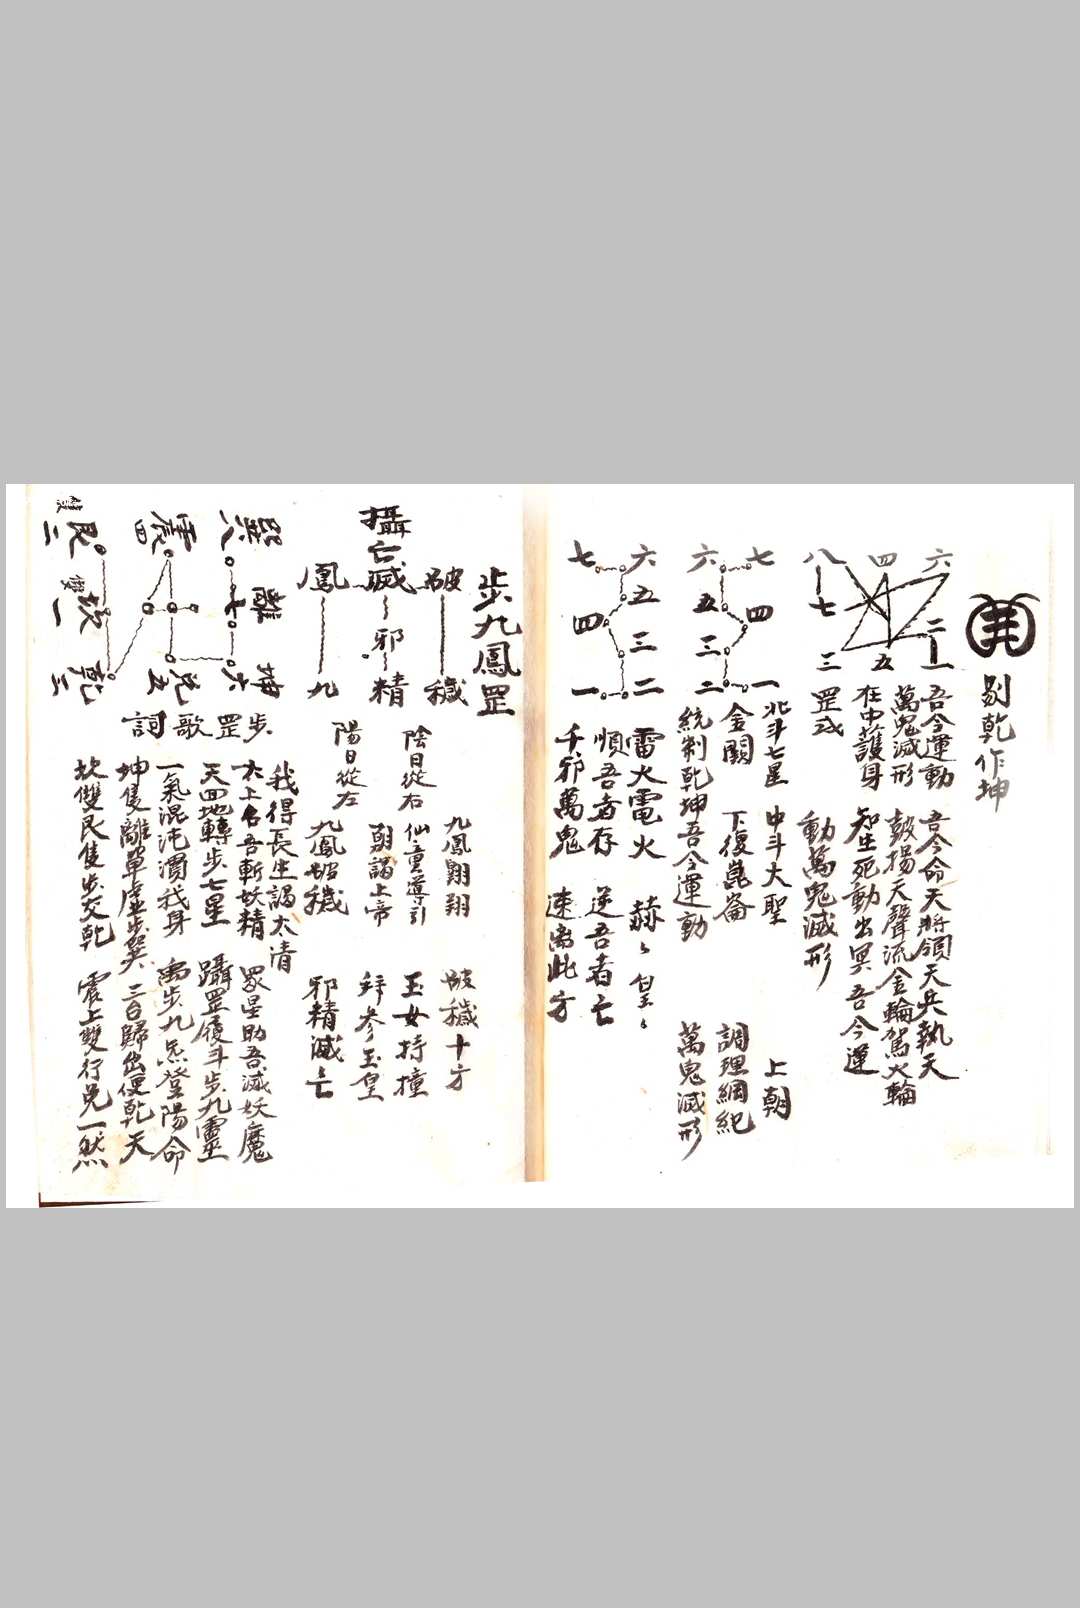 剔乾作坤
六
二
一
四
五
八
七
三
吾今運動 吾今命天將領天兵執天
萬鬼滅形 鼓揚天聲流金輪駕火輪
在中護身 知生死動出冥 吾今運
罡或 動萬鬼滅形
七
四
一
六
五
三
二
北斗七星 中斗大聖 上朝
金闕 下復崑崙 調理綱紀
統制乾坤吾今運動 萬鬼滅形
六
五
三
二
七
四
一
雷火電火 赫々皇々
順吾者存 逆吾者亡
千邪萬鬼 速离此方
步九鳳罡
破
穢
攝
亡滅
邪
精
鳳
九
陰日從右
陽日從左
九鳳翺翔 破穢十方
仙童導引 玉女持撞
朝謁上帝 拜參玉皇
九鳳破穢 邪精滅亡
巽八
離
七
坤
六
震四
兌五
雙
艮三
雙
坎一
乾三
步罡歌詞
我得長生謁太清 眾星助吾滅妖魔
太上名吾斬妖精 躡罡履斗步九靈
天囬地轉步七星 禹步九炁登陽命
一氣混沌灌我身 三台歸出便乾天
坤隻離單虛步巽 震上雙行兌一然
坎雙艮隻步交乾